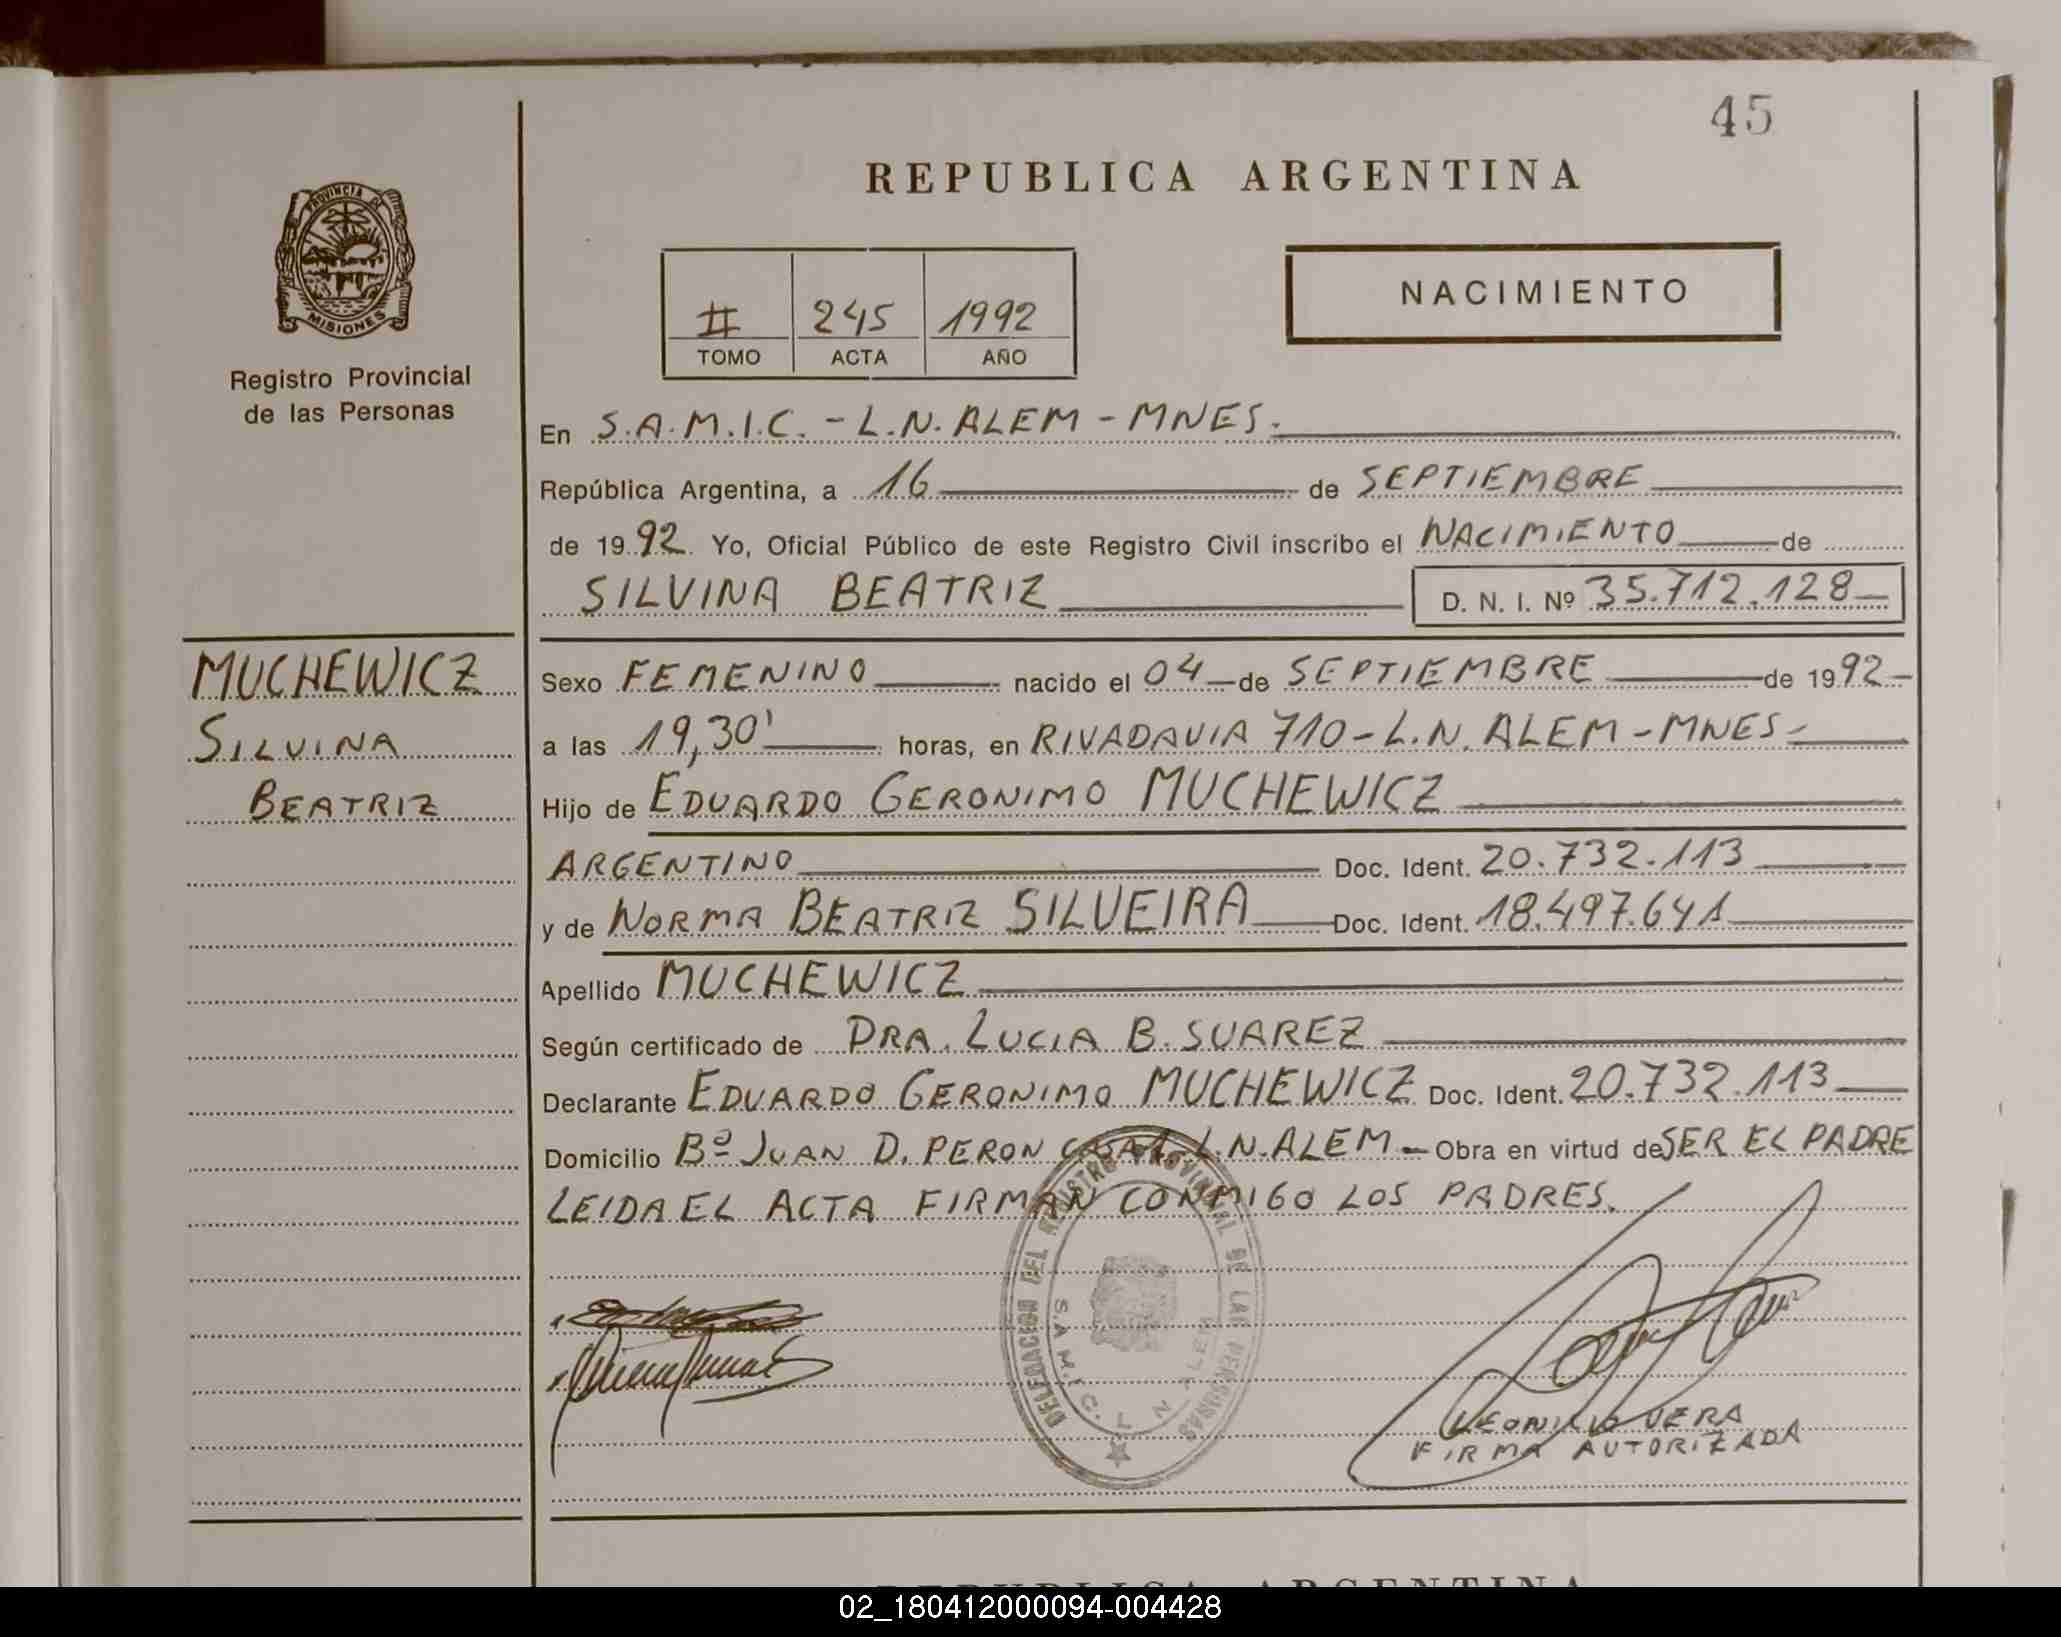 45
REPUBLICA ARGENTINA
PROVINCIA DE
MISIONES
Registro Provincial
de las Personas
II 245 1992
TOMO ACTA AÑO
NACIMIENTO
En S.A.M.I.C. - L.N. ALEM - MNES.
República Argentina, a 16 de SEPTIEMBRE
de 1992 Yo, Oficial Público de este Registro Civil inscribo el NACIMIENTO de
SILVINA BEATRIZ D. N. I. Nº 35.712.128
MUCHEWICZ
SILVINA
BEATRIZ
Sexo FEMENINO nacido el 04 de SEPTIEMBRE de 1992
a las 19,30' horas, en RIVADAVIA 710 - L.N. ALEM - MNES
Hijo de EDUARDO GERONIMO MUCHEWICZ
ARGENTINO Doc. Ident. 20.732.113
y de NORMA BEATRIZ SILVEIRA Doc. Ident. 18.497.641
Apellido MUCHEWICZ
Según certificado de DRA. LUCIA B. SUAREZ
Declarante EDUARDO GERONIMO MUCHEWICZ Doc. Ident. 20.732.113
Domicilio Bº JUAN D. PERON CASA L.N. ALEM - Obra en virtud de SER EL PADRE
LEIDA EL ACTA FIRMAN CONMIGO LOS PADRES.
DELEGACION DEL REGISTRO PROVINCIAL DE LAS PERSONAS
S.A.M.I.C. L. N. ALEM
LEONILIO VERA
FIRMA AUTORIZADA
REPUBLICA ARGENTINA
02_180412000094-004428